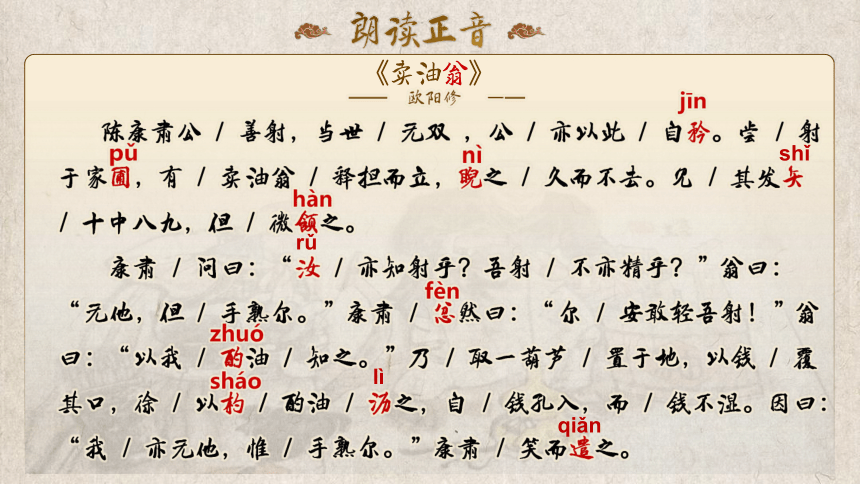 朗读正音
《卖油翁》
—— 欧阳修 ——
jīn
陈康肃公 / 善射，当世 / 无双 ，公 / 亦以此 / 自矜。尝 / 射
pǔ nì shǐ
于家圃，有 / 卖油翁 / 释担而立，睨之 / 久而不去。见 / 其发矢
hàn
/ 十中八九，但 / 微颔之。
rǔ
康肃 / 问曰：“汝 / 亦知射乎？吾射 / 不亦精乎？”翁曰：
fèn
“无他，但 / 手熟尔。”康肃 / 忿然曰：“尔 / 安敢轻吾射！”翁
zhuó
曰：“以我 / 酌油 / 知之。”乃 / 取一葫芦 / 置于地，以钱 / 覆
sháo lì
其口，徐 / 以杓 / 酌油 / 沥之，自 / 钱孔入，而 / 钱不湿。因曰：
qiǎn
“我 / 亦无他，惟 / 手熟尔。”康肃 / 笑而遣之。